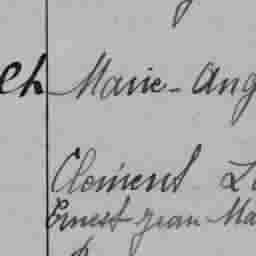 ch Marie-Ang
Clément L
Ernest Jean Ma